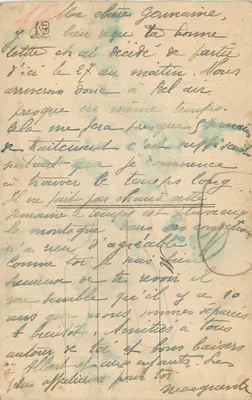 Ma chère Germaine,
bien reçu ta bonne
lettre et ai décidé de partir
d'ici le 27 au matin. Nous
arriverons donc à
presque en même temps.
Cela me fera presque
de traitement c'est suffisant
surtout que je commence
à trouver le temps long
Il ne fait pas chaud cette
semaine le temps est
la montagne dans ces conditions
n'a rien d'agréable.
Comme toi je suis
heureuse de te revoir il
me semble qu'il y a 10
ans que nous sommes séparées
A bientôt. Amitiés à tous
autour de toi et bons baisers
à et aux enfants. Les
plus affectueux pour toi
Marguerite